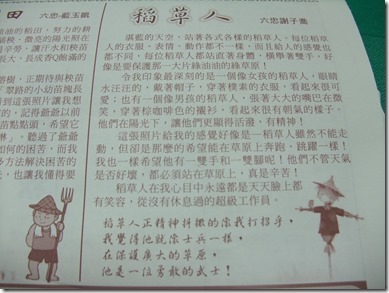 稻草人
六忠謝子喬
湛藍的天空，站著各式各樣的稻草人，每位稻草
人的衣服、表情、動作都不一樣，而且給人的感覺也
都不同，每位稻草人都站直著身體，橫舉著雙手，好
像是要保護那一大片綠油油的綠草原！
令我印象最深刻的是一個像女孩的稻草人，眼睛
水汪汪的，戴著帽子，穿著樸素的衣服，看起來很可
愛；也有一個像男孩的稻草人，張著大大的嘴巴在微
笑，穿著棕咖啡色的襯衫，看起來很有朝氣的樣子。
他們在陽光下，讓他們更顯得活潑，有精神！
這張照片給我的感覺好像是一稻草人雖然不能走
動，但卻是那麼的希望能在草原上奔跑，跳躍一樣！
我也一樣希望他有一雙手和一雙腳呢！他們不管天氣
是否好壞，都必須站在草原上，真是辛苦！
稻草人在我心目中永遠都是天天臉上都
有笑容，從沒有休息過的超級工作員。
稻草人正精神抖擻的向我打招手，
我覺得他就像士兵一樣，
在保護廣大的草原，
他是一位勇敢的武士！
田
六忠-藍玉凱
油油的稻田，努力的耕